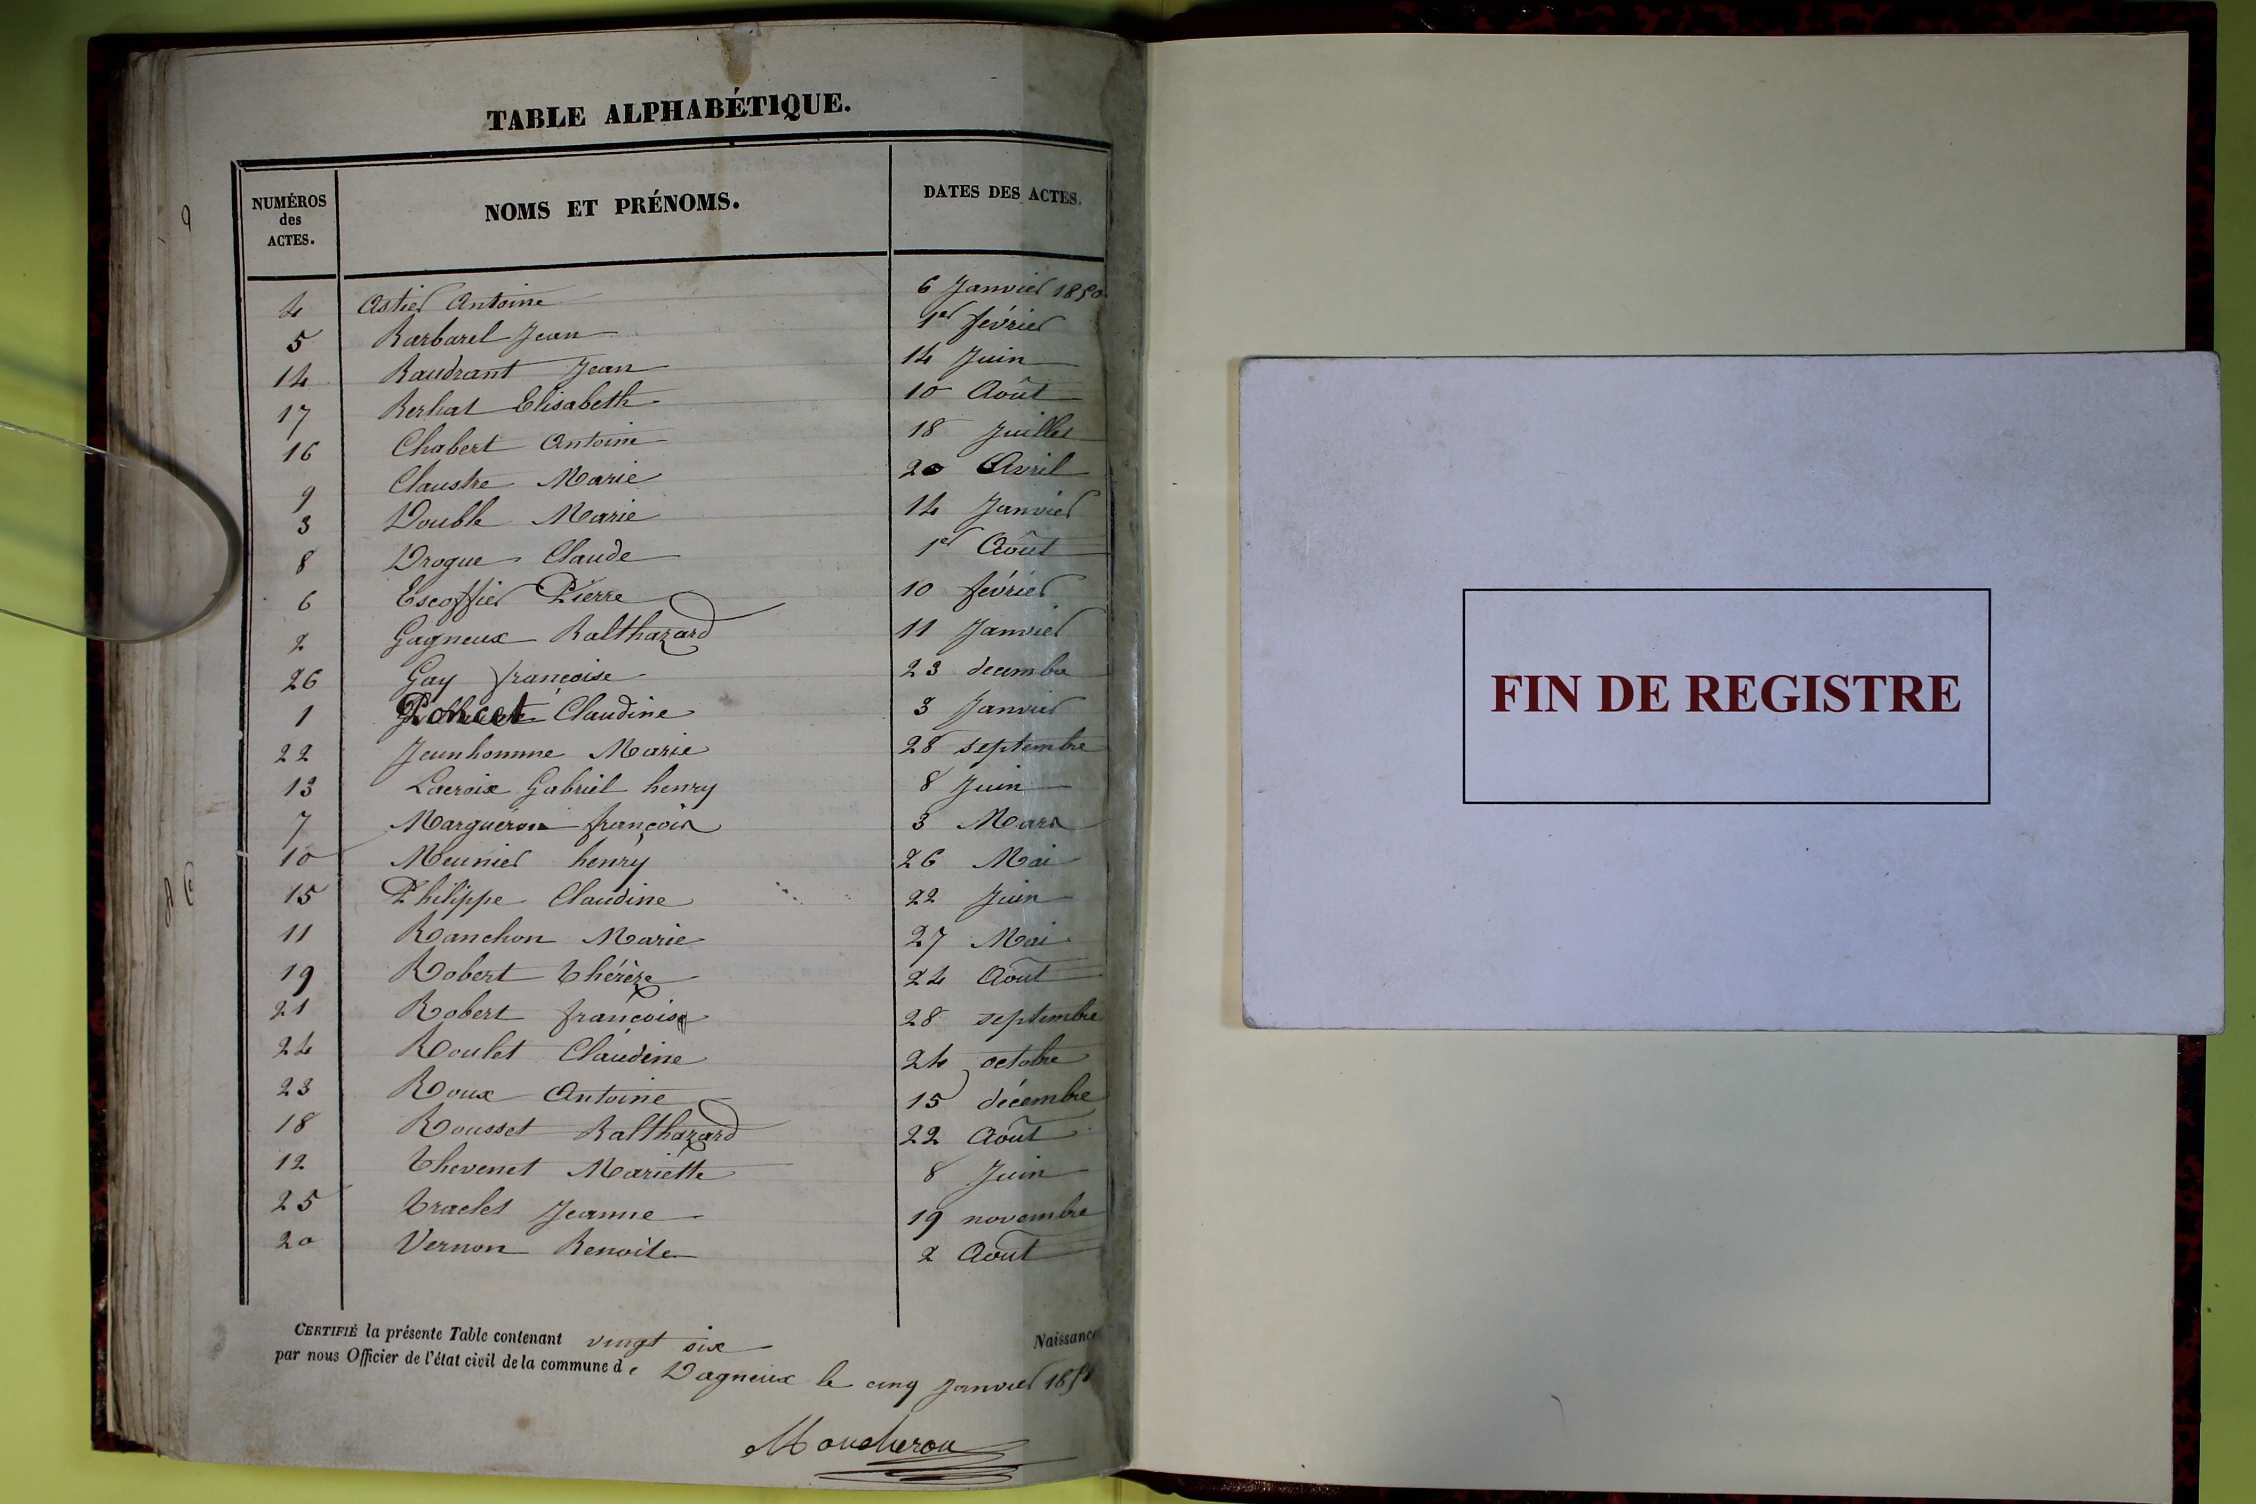 TABLE ALPHABÉTIQUE.
NUMÉROS des ACTES. NOMS ET PRÉNOMS. DATES DES ACTES.
4 Astier Antoine 6 Janvier 1850
5 Barbarel Jean 1er février
14 Baudrant Jean 14 Juin
17 Berhat Elisabeth 10 Août
16 Chabert Antoine 18 Juillet
9 Claustre Marie 20 Avril
3 Double Marie 14 Janvier
8 Drogue Claude 1er Août
6 Escoffier Pierre 10 février
2 Gagneux Balthazard 11 Janvier
26 Gay françoise 23 decembre
1 Poncet Claudine 3 Janvier
22 Jeunhomme Marie 28 septembre
13 Lacroix Gabriel henry 8 Juin
7 Margueron françois 3 Mars
10 Meunier henry 26 Mai
15 Philippe Claudine 22 Juin
11 Ranchon Marie 27 Mai
19 Robert Thérèze 24 Août
21 Robert françoise 28 septembre
24 Roulet Claudine 24 octobre
23 Roux Antoine 15 décembre
18 Rousset Balthazard 22 Août
12 Thevenet Mariette 8 Juin
25 Traclet Jeanne 19 novembre
20 Vernon Benoite 2 Août
CERTIFIÉ la présente Table contenant vingt six Naissance
par nous Officier de l'état civil de la commune de Dagneux le cinq Janvier 1851
Moucheron
FIN DE REGISTRE